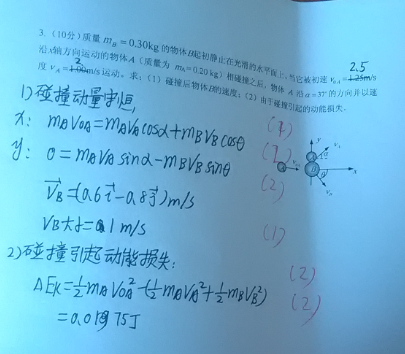 3. (10分) 质量 m_B = 0.30kg 的物体B起初静止在光滑的水平面上,当它被初速 v_{0A} = 1.25m/s 2.5
沿x轴方向运动的物体A (质量为 m_A=0.20 kg) 相碰撞之后,物体 A 沿 α=37° 的方向并以速
度 v_A = 1.00m/s 2 运动。求:(1) 碰撞后物体B的速度;(2)由于碰撞引起的动能损失。
1) 碰撞动量守恒
x: m_A V_{0A} = m_A V_A cosα + m_B V_B cosθ
y: 0 = m_A V_A sinα - m_B V_B sinθ (2)
V_B = (0.6 i - 0.8 j) m/s (2)
V_B大小= 1 m/s (1)
2) 碰撞引起动能损失: (2)
ΔE_K = ½ m_A V_{0A}² - (½ m_A V_A² + ½ m_B V_B²) (2)